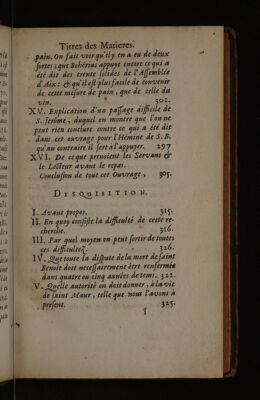 Titres des Matieres.
pain. On fait voir qu'il y en a eu de deux
sortes; que Bohérius appuye encore ce qui a
été dit des trente solides de l'Assemblée
d'Aix: & qu'il est plus facile de convenir
de cette mesure de pain, que de celle du
vin. 302.
XV. Explication d'un passage difficile de
S. Jerôme, duquel on montre que l'on ne
peut rien conclure contre ce qui a été dit
dans cet ouvrage pour l'Hémine de S. B.
qu'au contraire il sert al'appuyer. 297
XVI. De ce que prenoient les Servans &
le Lecteur avant le repas.
Conclusion de tout cet Ouvrage, 305.
DISQUISITION.
I. Avant propos. 315.
II. En quoy consiste la difficulté de cette re-
cherche. 316.
III. Par quel moyen on peut sortir de toutes
ces difficultez. 326.
IV. Que toute la dispute de la mort de saint
Benoit doit necessairement être renfermée
dans quatre ou cinq années de tems. 321.
V. Quelle autorité on doit donner, à la vie
de saint Maur, telle que nous l'avons à
present. 325.